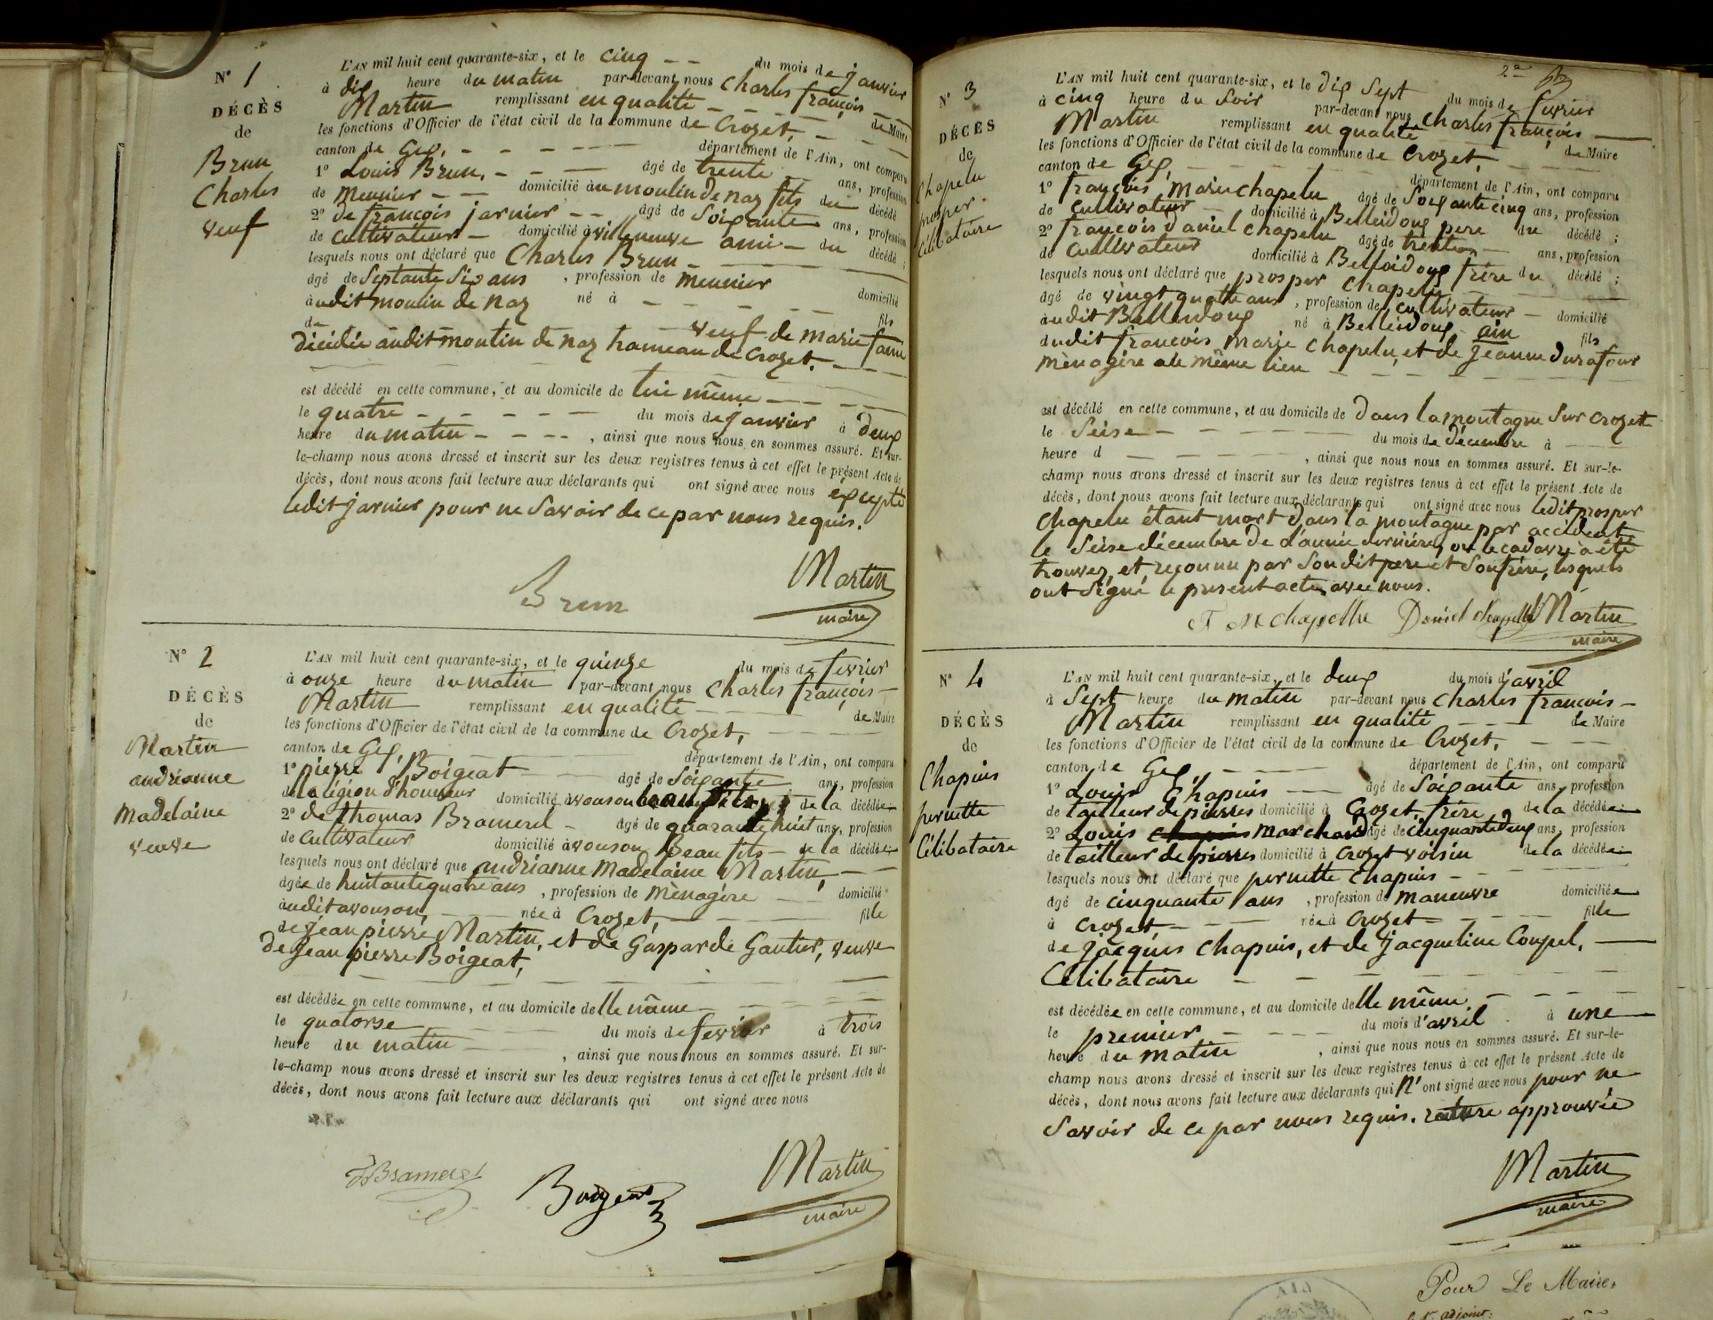 N° 1
DÉCÈS
de
Brun
Charles
veuf
L'AN mil huit cent quarante-six, et le cinq du mois de janvier
à dix heure du matin par-devant nous Charles françois
Martin remplissant en qualité de Maire
les fonctions d'Officier de l'état civil de la commune de Crozet,
canton de Gex, département de l'Ain, ont comparu
1° Louis Brun, âgé de trente ans, profession
de Meunier domicilié au moulin de naz fils du décédé
2° de françois jarnier âgé de Soixante ans, profession
de cultivateur domicilié à villeneuve ami du décédé ;
lesquels nous ont déclaré que Charles Brun
âgé de Septante Six ans , profession de meunier
audit moulin de naz né à domicilié
de veuf de marie fils
décédée audit moulin de naz hameau de Crozet.
est décédé en cette commune, et au domicile de lui même
le quatre du mois de janvier à deux
heure du matin , ainsi que nous nous en sommes assuré. Et sur-
le-champ nous avons dressé et inscrit sur les deux registres tenus à cet effet le présent Acte de
décès, dont nous avons fait lecture aux déclarants qui ont signé avec nous excepté
ledit jarnier pour ne Savoir de ce par nous requis.
Brun
Martin
maire
N° 2
DÉCÈS
de
Martin
andrianne
Madelaine
veuve
L'AN mil huit cent quarante-six, et le quinze du mois de fevrier
à onze heure du matin par-devant nous Charles françois
Martin remplissant en qualité de Maire
les fonctions d'Officier de l'état civil de la commune de Crozet,
canton de Gex, département de l'Ain, ont comparu
1° pierre Boigeat âgé de Soixante ans, profession
de la légion d'honneur domicilié à vouson beau fils de la décédée
2° de thomas Bramerel âgé de quarante huit ans, profession
de Cultivateur domicilié à vouson beau fils de la décédée
lesquels nous ont déclaré que andrianne Madelaine Martin,
âgée de huitante quatre ans , profession de Ménagère domicilié
audit avouson, née à Crozet, fille
de jean pierre Martin, et de Gasparde Gautier, veuve
de jean pierre Boigeat,
est décédée en cette commune, et au domicile delle même
le quatorse du mois de fevrier à trois
heure du matin , ainsi que nous nous en sommes assuré. Et sur-
le-champ nous avons dressé et inscrit sur les deux registres tenus à cet effet le présent Acte de
décès, dont nous avons fait lecture aux déclarants qui ont signé avec nous
Bramerel
Boigeat
Martin
maire
2e
N° 3
DÉCÈS
de
Chapelu
prosper.
Célibataire
L'AN mil huit cent quarante-six, et le dix Sept du mois de fevrier
à cinq heure du Soir par-devant nous Charles françois
Martin remplissant en qualité de Maire
les fonctions d'Officier de l'état civil de la commune de Crozet,
canton de Gex, département de l'Ain, ont comparu
1° françois, Marie chapelu âgé de Soixante cinq ans, profession
de cultivateur domicilié à Belleidoux pere du décédé ;
2° françois daniel chapelu âgé de trente ans, profession
de cultivateur domicilié à Belleidoux frère du décédé ;
lesquels nous ont déclaré que prosper Chapelu
âgé de vingt quatre ans , profession de cultivateur domicilié
audit Belleidoux né à Belleidoux ain fils
dudit françois, Marie Chapelu, et de jeanne durafour
ménagère au même lieu
est décédé en cette commune, et au domicile de dans la montagne Sur Crozet
le Seise du mois de Décembre à
heure d , ainsi que nous nous en sommes assuré. Et sur-le-
champ nous avons dressé et inscrit sur les deux registres tenus à cet effet le présent Acte de
décès, dont nous avons fait lecture aux déclarants qui ont signé avec nous ledit prosper
Chapelu étant mort dans la montagne par accident
le Seise décembre de l'année dernière, ou le cadavre a été
trouvez et reconnu par Son dit pere et Son frère, lesquels
ont Signé le present acte avec nous.
F M chapelle Daniel chapelle Martin
maire
N° 4
DÉCÈS
de
Chapuis
pernette
Célibataire
L'AN mil huit cent quarante-six, et le deux du mois d'avril
à Sept heure du matin par-devant nous Charles françois
Martin remplissant en qualité de Maire
les fonctions d'Officier de l'état civil de la commune de Crozet,
canton de Gex département de l'Ain, ont comparu
1° Louis Chapuis âgé de Soixante ans, profession
de tailleur de pierres domicilié à Crozet, frère de la décédée
2° Louis chapuis marchand âgé de cinquante deux ans, profession
de tailleur de pierres domicilié à Crozet voisin de la décédée
lesquels nous ont déclaré que pernette Chapuis
âgé de cinquante ans , profession de maneuvre domiciliée
à Crozet née à Crozet fille
de jacques Chapuis, et de jacqueline Coupel,
Célibataire
est décédée en cette commune, et au domicile delle même
le premier du mois d'avril à une
heure du matin , ainsi que nous nous en sommes assuré. Et sur-le-
champ nous avons dressé et inscrit sur les deux registres tenus à cet effet le présent Acte de
décès, dont nous avons fait lecture aux déclarants qui n'ont signé avec nous pour ne
Savoir de ce par nous requis. rature approuvée
Martin
maire
Pour Le Maire,